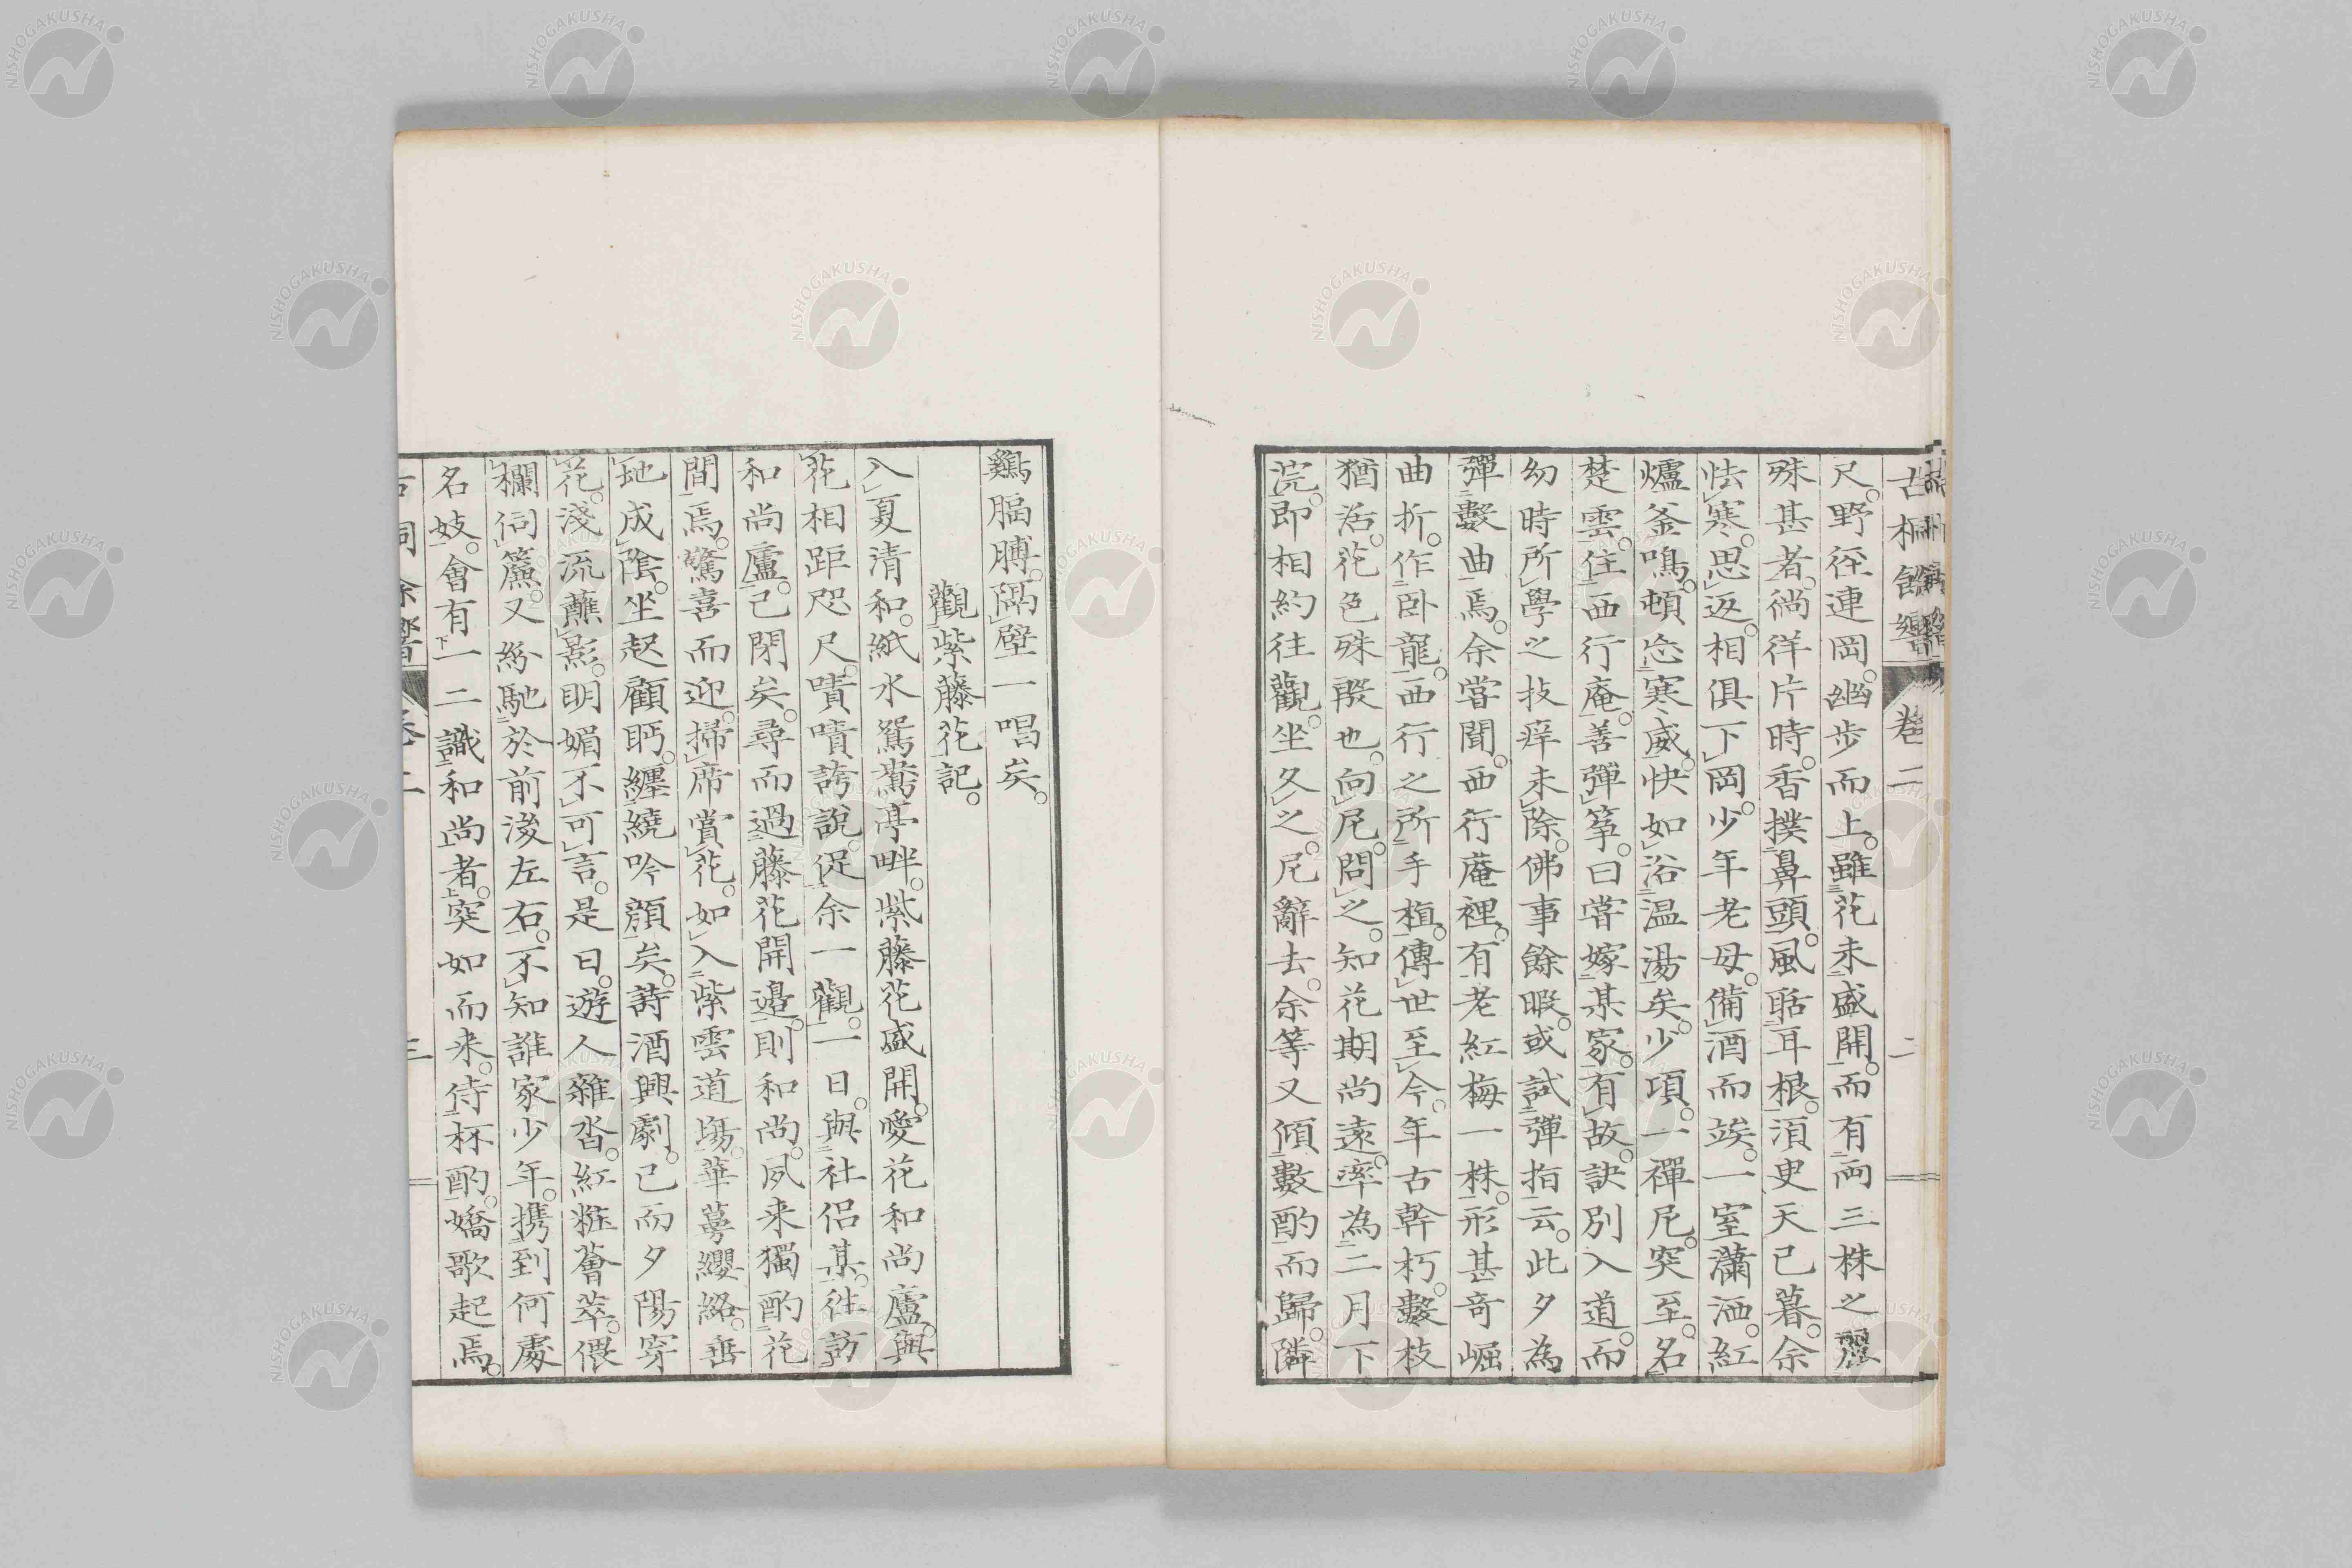 古桐餘響 卷二 二
尺。野徑連岡。幽步而上。雖花未盛開。而有兩三株之
殊甚者。徜徉片時。香撲鼻頭。風聒耳根。須臾天已暮。余
怯寒。思返。相俱下岡。少年老母。備酒而竢。一室瀟洒。紅
爐釜鳴。頓忘寒威。快如浴温湯矣。少項。一禪尼。突至。名
楚雲。住西行庵。善彈箏。曰嘗嫁某家。有故。訣別入道。而
幼時所學之技癢未除。佛事餘暇。或試彈指云。此夕為
彈數曲焉。余嘗聞。西行菴裡。有老紅梅一株。形甚奇崛
曲折。作卧龍。西行之所手植。傳世至今。年古幹朽。數枝
猶活。花色殊殷也。向尼。問之。知花期尚遠。率為二月下
浣。即相約往觀。坐久之。尼辭去。余等又傾數酌而歸。隣
鷄膈膊。隔壁一唱矣。
觀紫藤花記。
入夏清和。紙水鴛鴦亭畔。紫藤花盛開。愛花和尚廬。與
花相距咫尺。嘖嘖誇說。促余一觀。一日。與社侶某。往訪
和尚廬。已閉矣。尋而過藤花開邊。則和尚。夙来獨酌花
間焉。驚喜而迎。掃席賞花。如入紫雲道塲。華蔓纓絡。垂
地成陰。坐起顧眄。纏繞吟顔矣。詩酒興劇。已而夕陽穿
花。淺流蘸影。明媚不可言。是日。遊人雜沓。紅粧薈萃。偎
欄伺簾。又紛馳於前後左右。不知誰家少年。携到何處
名妓。會有一二識和尚者。突如而来。侍杯酌。嬌歌起焉。
古桐餘響 卷二 三
NISHOGAKUSHA